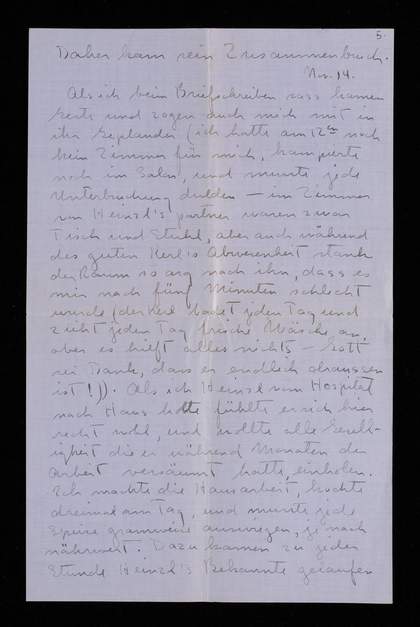 5.
Daher kam sein Zusammenbruch.
Nov. 14.
Als ich beim Briefschreiben sass kamen
Leute und zogen auch mich mit in
ihr Geplauder (ich hatte am 12ten noch
kein Zimmer für mich, kampierte
noch im Salon, und musste jede
Unterbrechung dulden — im Zimmer
von Heinzl's partner waren zwar
Tisch und Stuhl, aber auch während
des guten Kerl's Abwesenheit stank
der Raum so arg nach ihm, dass es
mir nach fünf Minuten schlecht
wurde (der Kerl badet jeden Tag und
zieht jeden Tag frische Wäsche an,
aber es hilft alles nichts — Gott
sei Dank, dass er endlich draussen
ist!)). Als ich Heinzl vom Hospital
nach Haus holte fühlte er sich hier
recht wohl, und wollte alle
die er während Monaten der
Arbeit versäumt hatte, einholen.
Ich machte die Hausarbeit, kochte
dreimal am Tag, und musste jede
Speise grammweise auswiegen, je nach
nährwert. Dazu kamen zu jeder
Stunde Heinzl's Bekannte gelaufen